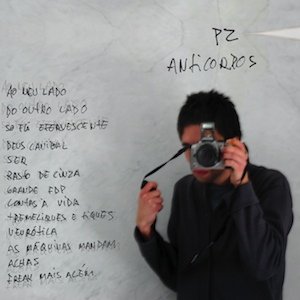 PZ
ANTICORPOS
AO MEU LADO
DO OUTRO LADO
SO EU EFERVESCENTE
DEUS CANIBAL
SER
RASTO DE CINZA
GRANDE FDP
CONTAS À VIDA
TREMELIQUES E TIQUES
NEURÓTICA
AS MÁQUINAS MANDAM
ACHAS
FREAK MAIS ALÉM